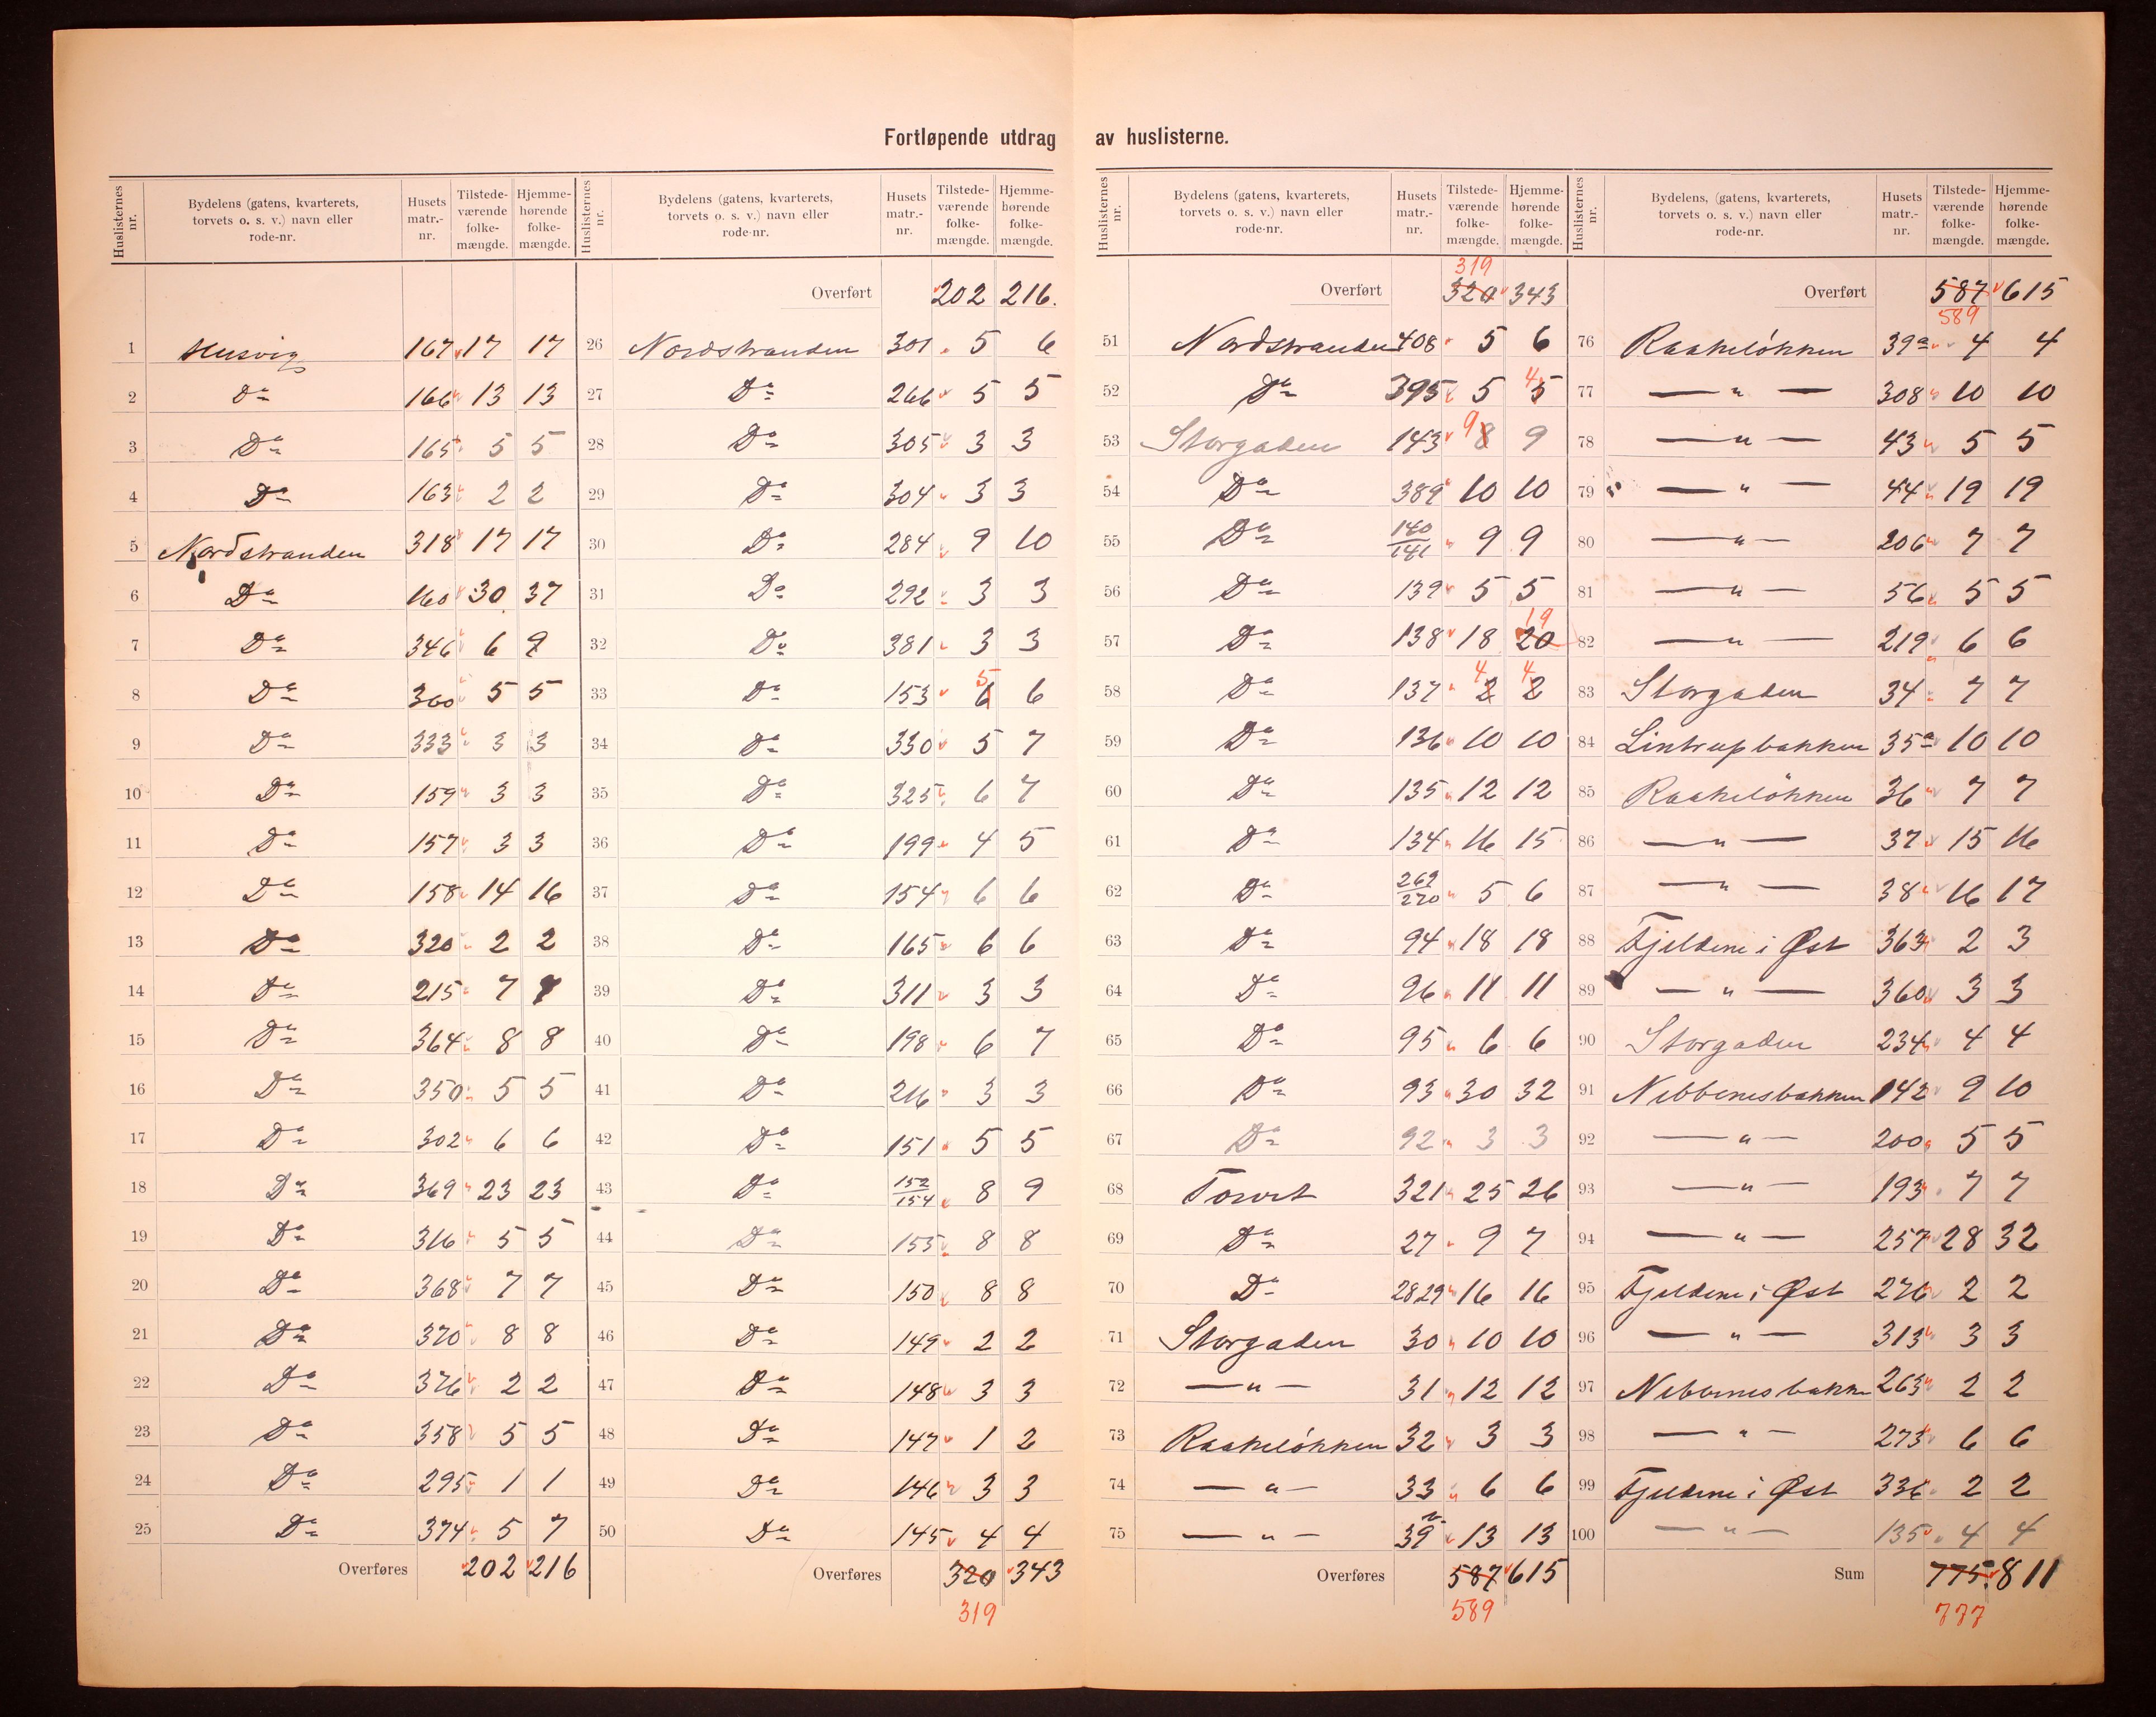 Fortløpende utdrag av huslisterne.
Huslisternes nr. | Bydelens (gatens, kvarterets, torvets o. s. v.) navn eller rode-nr. | Husets matr.-nr. | Tilstede-værende folke-mængde. | Hjemme-hørende folke-mængde.
1 Husvig 167 17 17
2 Do 166 13 13
3 Do 165 5 5
4 Do 163 2 2
5 Nordstranden 318 17 17
6 Do 160 30 37
7 Do 346 6 9
8 Do 360 5 5
9 Do 333 3 3
10 Do 159 3 3
11 Do 157 3 3
12 Do 158 14 16
13 Do 320 2 2
14 Do 215 7 7
15 Do 364 8 8
16 Do 350 5 5
17 Do 302 6 6
18 Do 369 23 23
19 Do 316 5 5
20 Do 368 7 7
21 Do 370 8 8
22 Do 376 2 2
23 Do 358 5 5
24 Do 295 1 1
25 Do 374 5 7
Overføres 202 216
Huslisternes nr. | Bydelens (gatens, kvarterets, torvets o. s. v.) navn eller rode-nr. | Husets matr.-nr. | Tilstede-værende folke-mængde. | Hjemme-hørende folke-mængde.
Overført 202 216.
26 Nordstranden 301 5 6
27 Do 266 5 5
28 Do 305 3 3
29 Do 304 3 3
30 Do 284 9 10
31 Do 292 3 3
32 Do 381 3 3
33 Do 153 6 5 6
34 Do 330 5 7
35 Do 325 6 7
36 Do 199 4 5
37 Do 154 6 6
38 Do 165 6 6
39 Do 311 3 3
40 Do 198 6 7
41 Do 216 3 3
42 Do 151 5 5
43 Do 152/154 8 9
44 Do 155 8 8
45 Do 150 8 8
46 Do 149 2 2
47 Do 148 3 3
48 Do 147 1 2
49 Do 146 3 3
50 Do 145 4 4
Overføres 320 343
319
Huslisternes nr. | Bydelens (gatens, kvarterets, torvets o. s. v.) navn eller rode-nr. | Husets matr.-nr. | Tilstede-værende folke-mængde. | Hjemme-hørende folke-mængde.
319
Overført 320 343
51 Nordstranden 408 5 6
52 Do 395 5 5 4
53 Storgaden 143 8 9 9
54 Do 389 10 10
55 Do 140/141 9 9
56 Do 139 5 5
57 Do 138 18 20 19
58 Do 137 2 4 2 4
59 Do 136 10 10
60 Do 135 12 12
61 Do 134 16 15
62 Do 269/270 5 6
63 Do 94 18 18
64 Do 96 11 11
65 Do 95 6 6
66 Do 93 30 32
67 Do 92 3 3
68 Torvet 321 25 26
69 Do 27 9 7
70 Do 28 29 16 16
71 Storgaden 30 10 10
72 — " — 31 12 12
73 Raakeløkken 32 3 3
74 — " — 33 6 6
75 — " — 39 13 13
Overføres 587 615
589
Huslisternes nr. | Bydelens, (gatens, kvarterets, torvets o. s. v.) navn eller rode-nr. | Husets matr.-nr. | Tilstede-værende folke-mængde. | Hjemme-hørende folke-mængde.
Overført 587 615
589
76 Raakeløkken 39a 4 4
77 — " — 308 10 10
78 — " — 43 5 5
79 — " — 44 19 19
80 — " — 206 7 7
81 — " — 56 5 5
82 — " — 219 6 6
83 Storgaden 34 7 7
84 Lintrupbakken 35a 10 10
85 Raakeløkken 36 7 7
86 — " — 37 15 16
87 — " — 38 16 17
88 Fjeldene i Øst 363 2 3
89 — " — 360 3 3
90 Storgaden 234 4 4
91 Nibbenesbakken 142 9 10
92 — " — 200 5 5
93 — " — 193 7 7
94 — " — 257 28 32
95 Fjeldene i Øst 276 2 2
96 — " — 313 3 3
97 Nibbenesbakken 263 2 2
98 — " — 273 6 6
99 Fjeldene i Øst 336 2 2
100 — " — 135 4 4
Sum 775 811
777